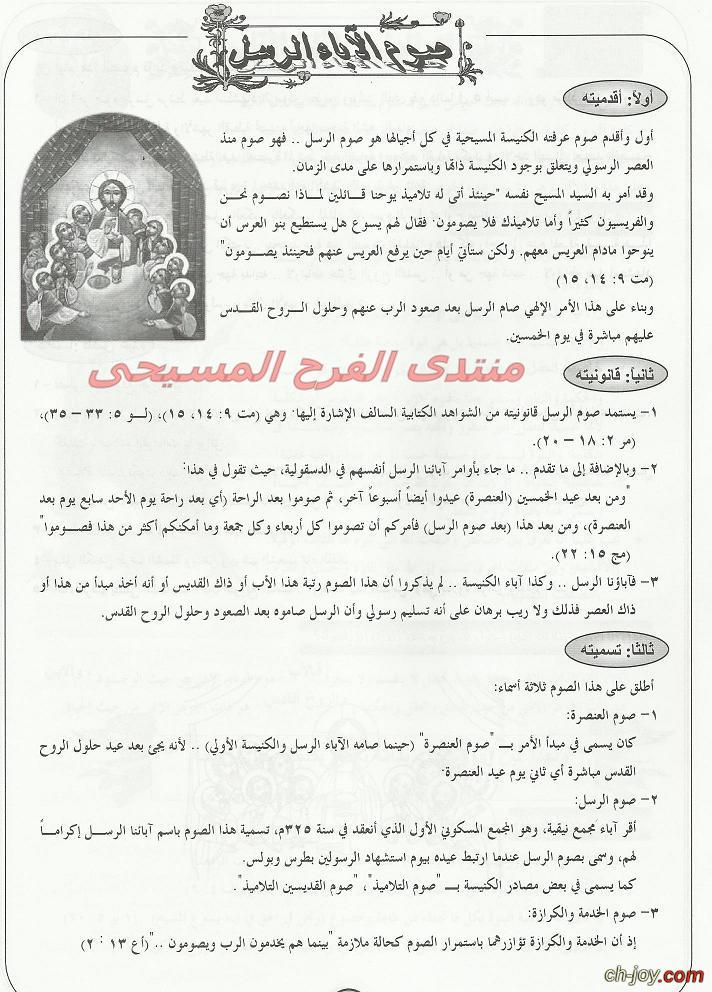 صوم الآباء الرسل
أولاً: أقدميته
أول وأقدم صوم عرفته الكنيسة المسيحية في كل أجيالها هو صوم الرسل .. فهو صوم منذ
العصر الرسولي ويتعلق بوجود الكنيسة ذاتها وباستمرارها على مدى الزمان.
وقد أمر به السيد المسيح نفسه "حينئذ أتى له تلاميذ يوحنا قائلين لماذا نصوم نحن
والفريسيون كثيراً وأما تلاميذك فلا يصومون. فقال لهم يسوع هل يستطيع بنو العرس أن
ينوحوا مادام العريس معهم. ولكن ستأتي أيام حين يرفع العريس عنهم فحينئذ يصومون"
(مت ٩: ١٤، ١٥)
وبناء على هذا الأمر الإلهي صام الرسل بعد صعود الرب عنهم وحلول الروح القدس
عليهم مباشرة في يوم الخمسين.
منتدى الفرح المسيحى
ثانياً: قانونيته
١- يستمد صوم الرسل قانونيته من الشواهد الكتابية السالف الإشارة إليها. وهي (مت ٩: ١٤، ١٥)، (لو ٥: ٣٣ – ٣٥)،
(مر ٢: ١٨ – ٢٠).
٢- وبالإضافة إلى ما تقدم .. ما جاء بأوامر آبائنا الرسل أنفسهم في الدسقولية، حيث تقول في هذا:
"ومن بعد عيد الخمسين (العنصرة) عيدوا أيضاً أسبوعاً آخر، ثم صوموا بعد الراحة (أي بعد راحة يوم الأحد سابع يوم بعد
العنصرة)، ومن بعد هذا (بعد صوم الرسل) فأمركم أن تصوموا كل أربعاء وكل جمعة وما أمكنكم أكثر من هذا فصوموا"
(مج ١٥: ٢٢).
٣- فآباؤنا الرسل .. وكذا آباء الكنيسة .. لم يذكروا أن هذا الصوم رتبة هذا الأب أو ذاك القديس أو أنه أخذ مبدأ من هذا أو
ذاك العصر فذلك ولا ريب برهان على أنه تسليم رسولي وأن الرسل صاموه بعد الصعود وحلول الروح القدس.
ثالثا: تسميته
أطلق على هذا الصوم ثلاثة أسماء:
١- صوم العنصرة:
كان يسمى في مبدأ الأمر بـــ "صوم العنصرة" (حينما صامه الآباء الرسل والكنيسة الأولي) .. لأنه يجئ بعد عيد حلول الروح
القدس مباشرة أي ثاني يوم عيد العنصرة.
٢- صوم الرسل:
أقر آباء مجمع نيقية، وهو المجمع المسكوني الأول الذي أنعقد في سنة ٣٢٥م، تسمية هذا الصوم باسم آبائنا الرسل إكراماً
لهم، وسمى بصوم الرسل عندما ارتبط عيده بيوم استشهاد الرسولين بطرس وبولس.
كما يسمى في بعض مصادر الكنيسة بـــ "صوم التلاميذ"، "صوم القديسين التلاميذ".
٣- صوم الخدمة والكرازة:
إذ أن الخدمة والكرازة تؤازرهما باستمرار الصوم كحالة ملازمة "بينما هم يخدمون الرب ويصومون .."(أع ١٣ : ٢)
ch-joy.com